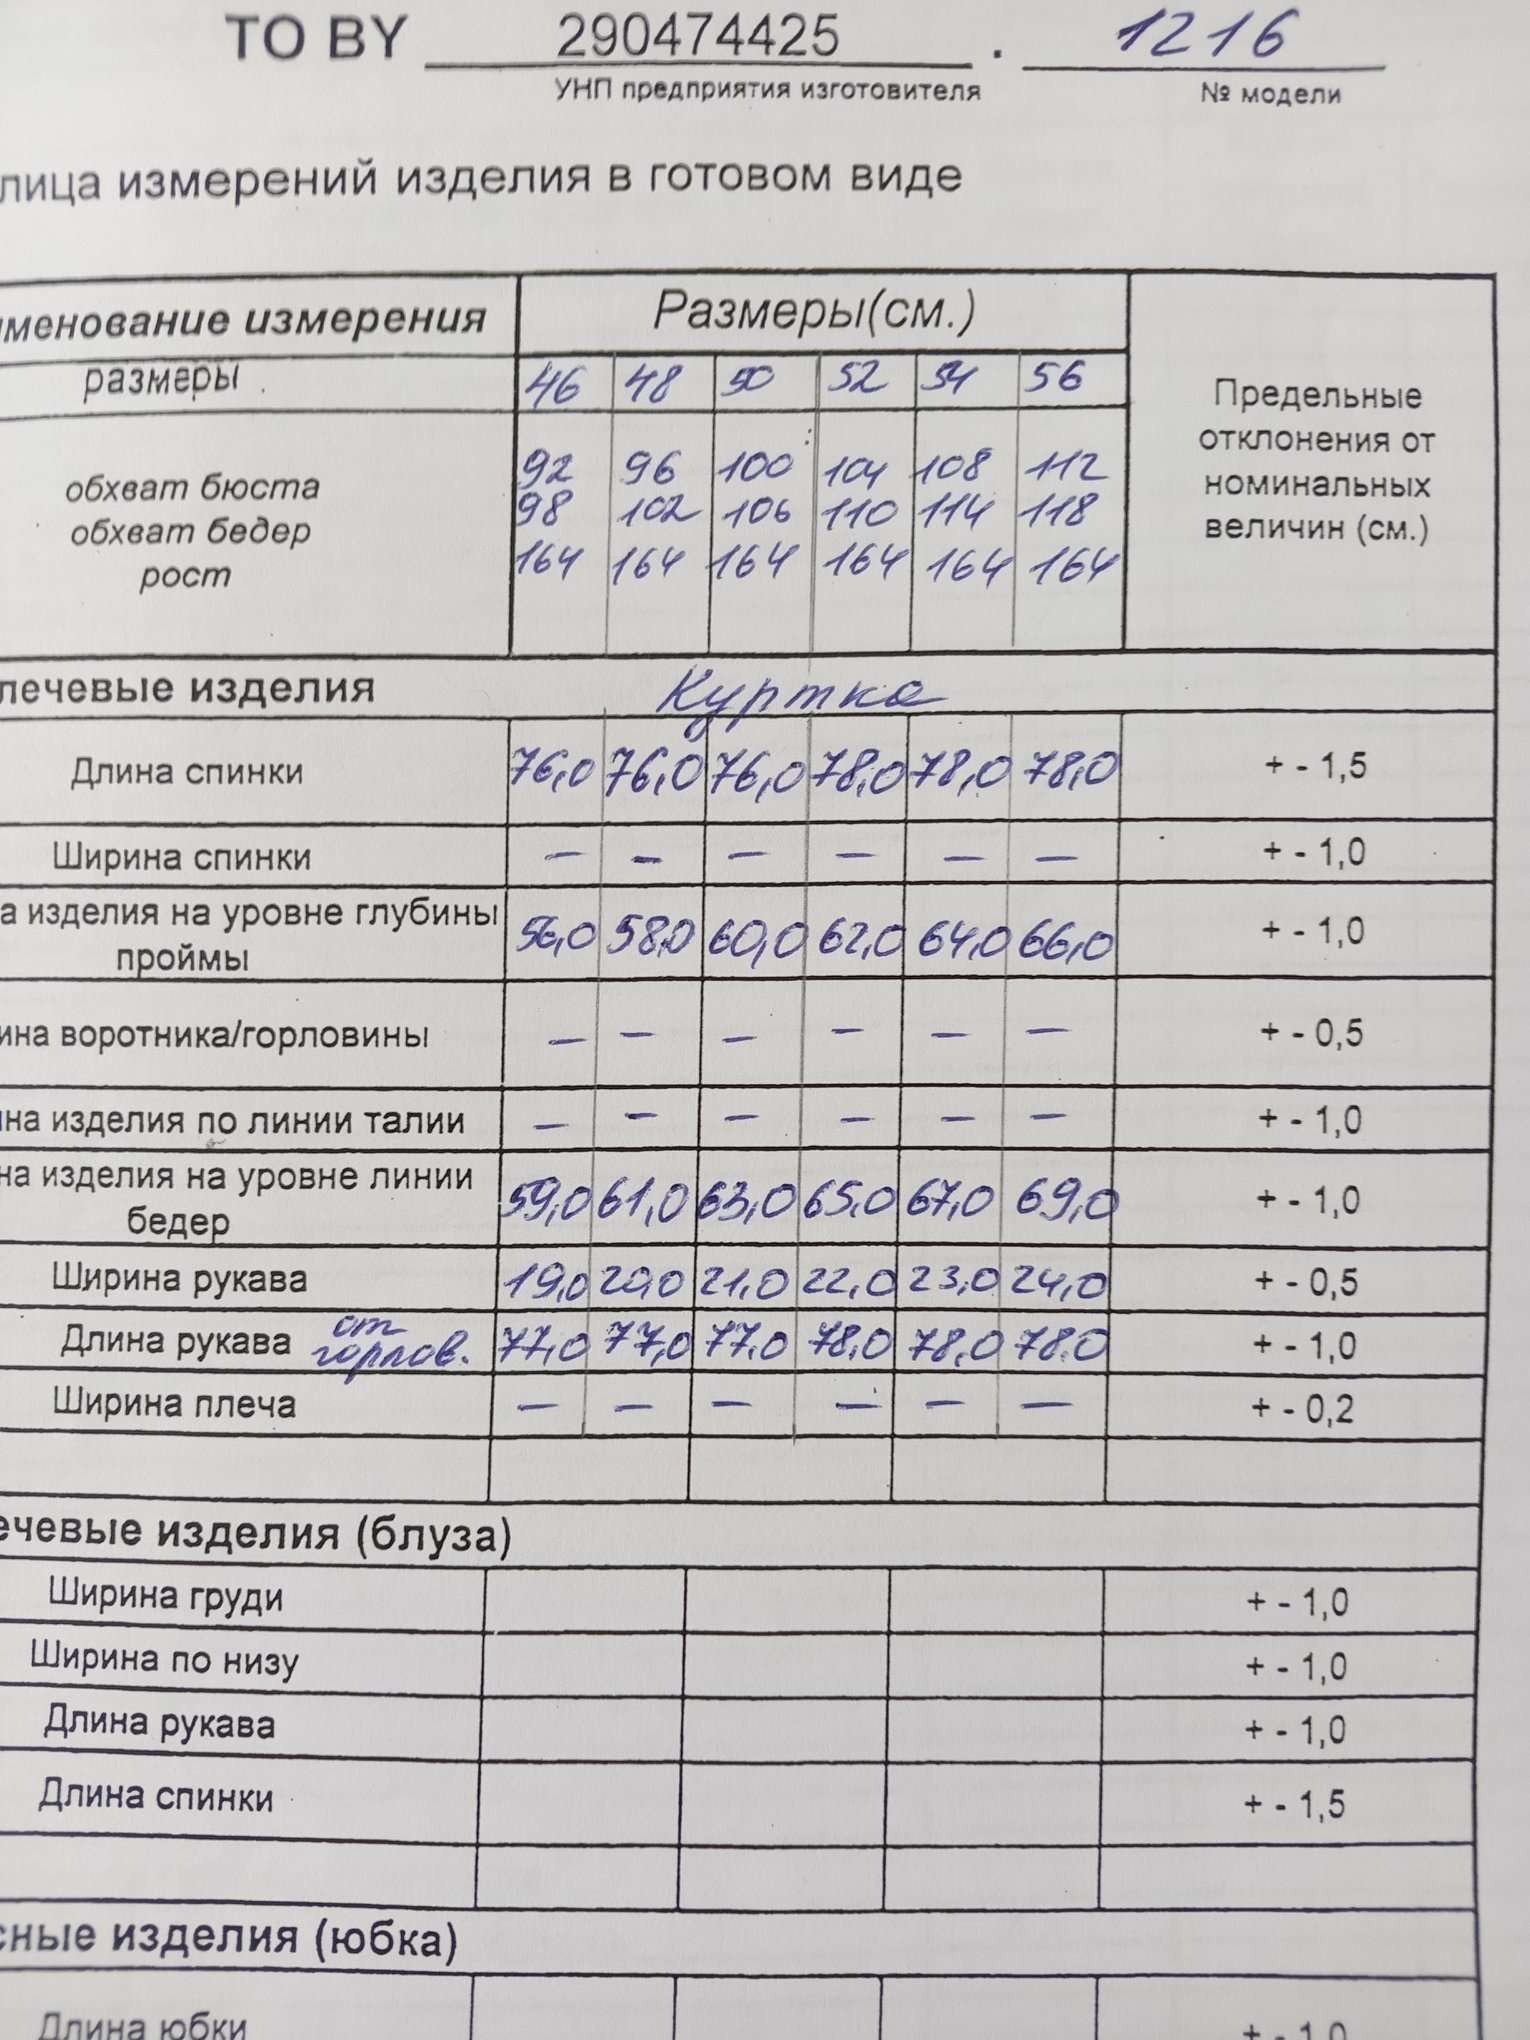 ТО BY 290474425 . 1216
УНП предприятия изготовителя № модели
лица измерений изделия в готовом виде
менование измерения Размеры(см.) Предельные отклонения от номинальных величин (см.)
размеры 46 48 50 52 54 56
обхват бюста 92 96 100 104 108 112
обхват бедер 98 102 106 110 114 118
рост 164 164 164 164 164 164
лечевые изделия Куртка
Длина спинки 76,0 76,0 76,0 78,0 78,0 78,0 + - 1,5
Ширина спинки – – – – – – + - 1,0
а изделия на уровне глубины
проймы 56,0 58,0 60,0 62,0 64,0 66,0 + - 1,0
ина воротника/горловины – – – – – – + - 0,5
на изделия по линии талии – – – – – – + - 1,0
на изделия на уровне линии
бедер 59,0 61,0 63,0 65,0 67,0 69,0 + - 1,0
Ширина рукава 19,0 20,0 21,0 22,0 23,0 24,0 + - 0,5
Длина рукава от горлов. 77,0 77,0 77,0 78,0 78,0 78,0 + - 1,0
Ширина плеча – – – – – – + - 0,2
ечевые изделия (блуза)
Ширина груди + - 1,0
Ширина по низу + - 1,0
Длина рукава + - 1,0
Длина спинки + - 1,5
сные изделия (юбка)
Длина юбки + - 1,0